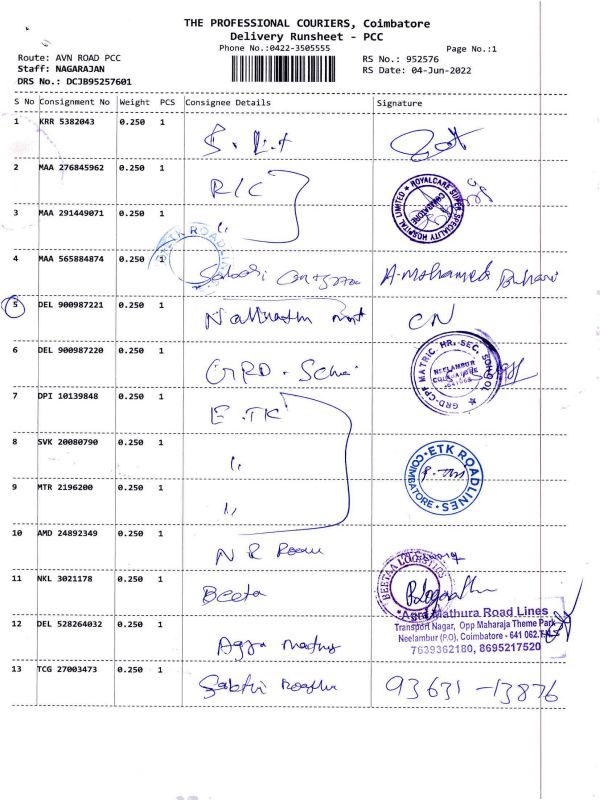 THE PROFESSIONAL COURIERS, Coimbatore
Delivery Runsheet - PCC
Phone No.:0422-3505555
Page No.:1
Route: AVN ROAD PCC
RS No.: 952576
Staff: NAGARAJAN
RS Date: 04-Jun-2022
DRS No.: DCJB95257601
S No Consignment No Weight PCS Consignee Details Signature
1 KRR 5382043 0.250 1
2 MAA 276845962 0.250 1 R/C
ROYALCARE SUPER SPECIALITY HOSPITAL LIMITED COIMBATORE
3 MAA 291449071 0.250 1 "
4 MAA 565884874 0.250 1 A. Mohamed Buhari
ETK ROADLINES
5 DEL 900987221 0.250 1 CN
6 DEL 900987220 0.250 1 GRD - School
GRD-CPF MATRIC. HR. SEC. SCHOOL
NEELAMBUR
COIMBATORE
641062
7 DPI 10139848 0.250 1 E.TK
8 SVK 20080790 0.250 1 "
ETK ROADLINES COIMBATORE
9 MTR 2196200 0.250 1 "
10 AMD 24892349 0.250 1 N R
11 NKL 3021178 0.250 1 Beeta
BEETAA LOGISTICS
Agra Mathura Road Lines
12 DEL 528264032 0.250 1 Agra
Transport Nagar, Opp Maharaja Theme Park
Neelambur (P.O), Coimbatore - 641 062.
7639362180, 8695217520
13 TCG 27003473 0.250 1 93631-13876